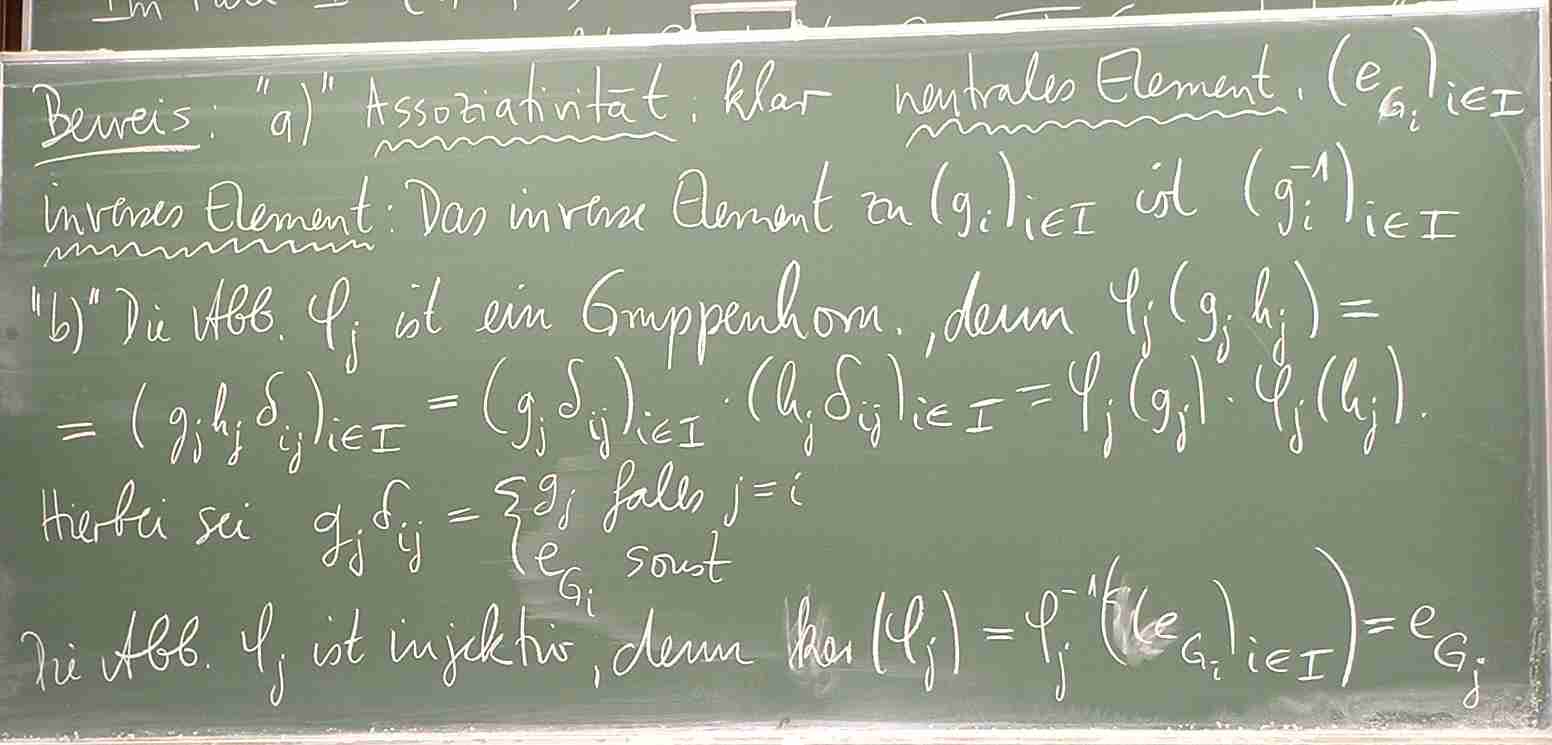 Im
Beweis: "a)" Assoziativität: klar neutrales Element: (e_{G_i})_{i∈I}
inverses Element: Das inverse Element zu (g_i)_{i∈I} ist (g_i^{-1})_{i∈I}
"b)" Die Abb. φ_j ist ein Gruppenhom., denn φ_j(g_j h_j) =
= (g_j h_j δ_{ij})_{i∈I} = (g_j δ_{ij})_{i∈I} · (h_j δ_{ij})_{i∈I} = φ_j(g_j) · φ_j(h_j).
Hierbei sei g_j δ_{ij} = { g_j falls j=i
e_{G_i} sonst
Die Abb. φ_j ist injektiv, denn ker(φ_j) = φ_j^{-1}((e_{G_i})_{i∈I}) = e_{G_j}